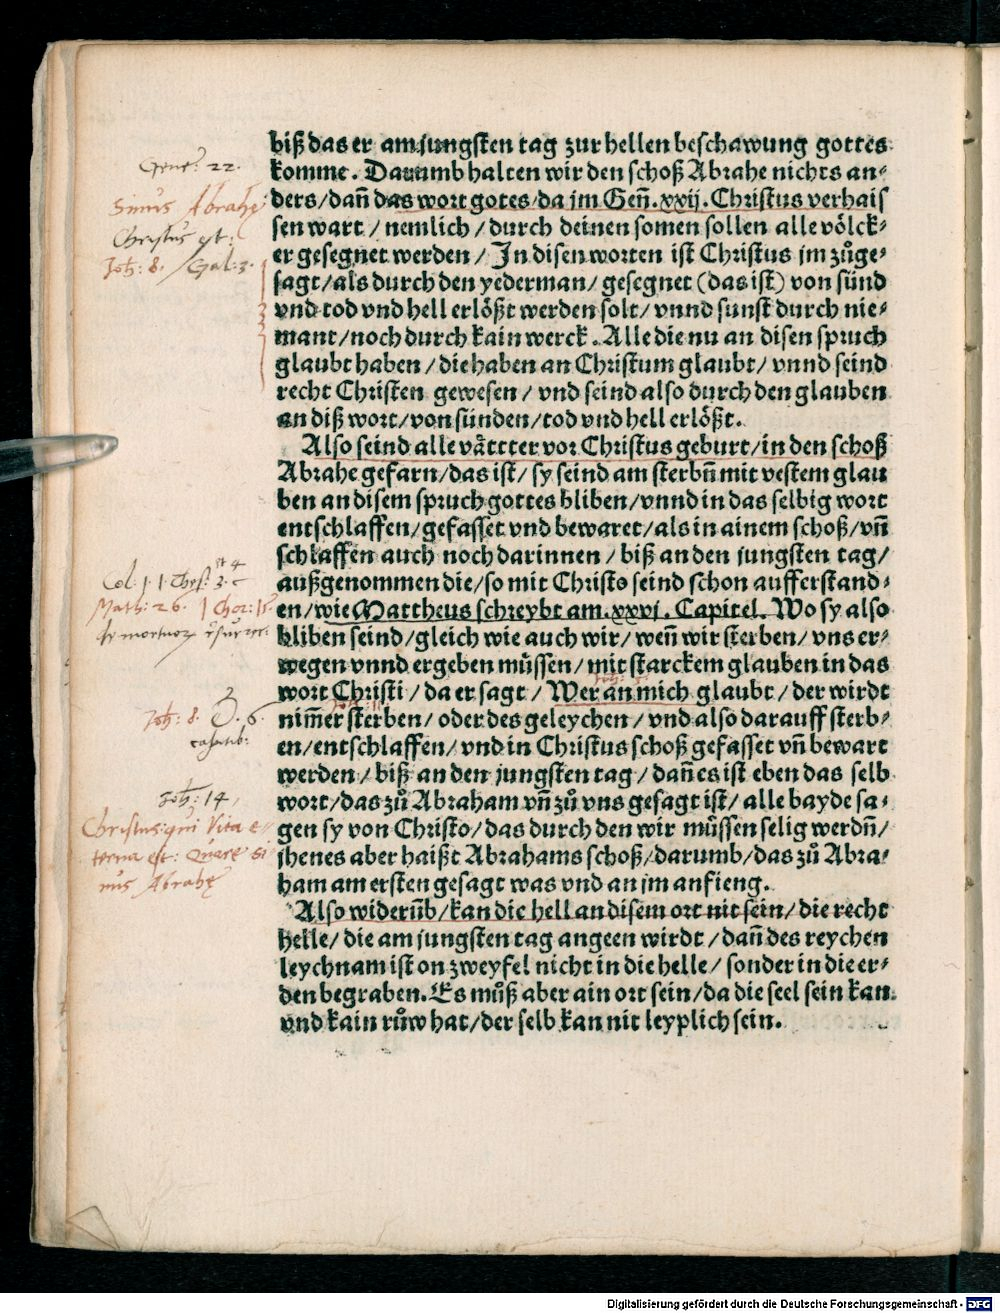 biß das er am jungsten tag zur hellen beschawung gottes
komme. Darumb halten wir den schoß Abrahe nichts an-
ders/ dañ das wort gotes/ da jm Geñ. xxij. Christus verhais
sen wart/ nemlich/ durch deinen somen sollen alle völck-
er gesegnet werden/ In disen worten ist Christus jm zůge-
sagt/ als durch den yederman/ gesegnet (das ist) von sünd
vnd tod vnd hell erlößt werden solt/ vnnd sunst durch nie-
mant/ noch durch kain werck. Alle die nu an disen spruch
glaubt haben/ die haben an Christum glaubt/ vnnd seind
recht Christen gewesen/ vnd seind also durch den glauben
an diß wort/ von sünden/ tod vnd hell erlößt.
Also seind alle vättter vor Christus geburt/ in den schoß
Abrahe gefarn/ das ist/ sy seind am sterbñ mit vestem glau
ben an disem spruch gottes bliben/ vnnd in das selbig wort
entschlaffen/ gefasset vnd bewaret/ als in ainem schoß/ vñ
schlaffen auch noch darinnen/ biß an den jungsten tag/
außgenommen die/ so mit Christo seind schon aufferstand-
en/ wie Mattheus schreybt am. xxvi. Capitel. Wo sy also
bliben seind/ gleich wie auch wir/ weñ wir sterben/ vns er-
wegen vnnd ergeben müssen/ mit starckem glauben in das
wort Christi/ da er sagt/ Wer an mich glaubt/ der wirdt
nim̃er sterben/ oder des geleychen/ vnd also darauff sterb-
en/ entschlaffen/ vnd in Christus schoß gefasset vñ bewart
werden/ biß an den jungsten tag/ dañ es ist eben das selb
wort/ das zů Abraham vñ zů vns gesagt ist/ alle bayde sa-
gen sy von Christo/ das durch den wir müssen selig werdñ/
jhenes aber haißt Abrahams schoß/ darumb/ das zů Abra-
ham am ersten gesagt was vnd an jm anfieng.
Also widerum̃b/ kan die hell an disem ort nit sein/ die recht
helle/ die am jungsten tag angeen wirdt/ dañ des reychen
leychnam ist on zweyfel nicht in die helle/ sonder in die er-
den begraben. Es můß aber ain ort sein/ da die seel sein kan
vnd kain růw hat/ der selb kan nit leyplich sein.
Gene: 22.
Sinus Abrahę
Christus est:
Joh: 8. / Gal: 3.
Col. 1. 1. Thes. 4
Math: 26. 1 Chor: 15
Joh: 8. 6.
Joh: 14
Christus: qui Vita e-
terna est: Quare Si
nus Abrahę